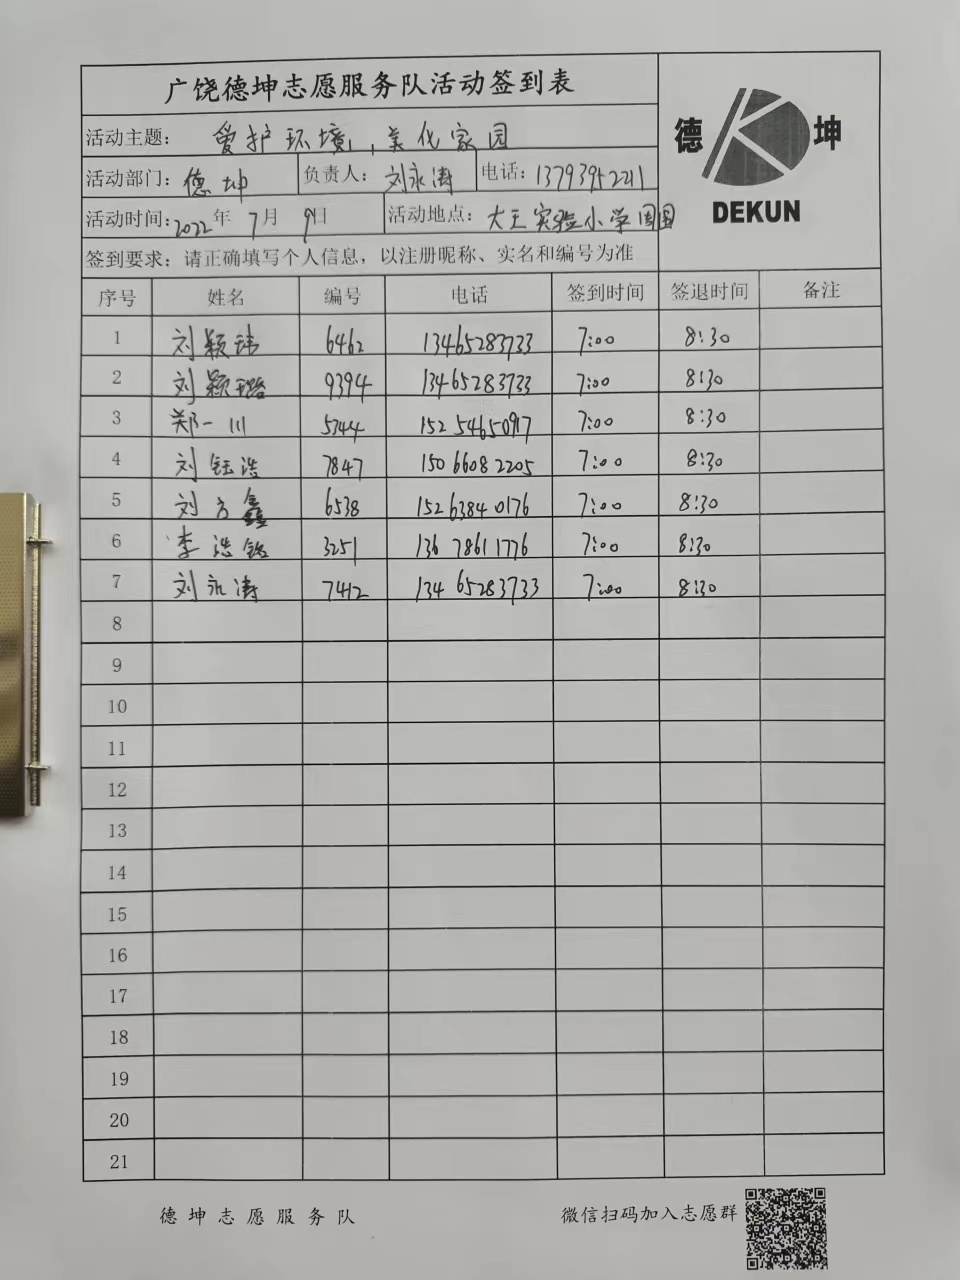 广饶德坤志愿服务队活动签到表
德 坤
DEKUN
活动主题： 爱护环境，美化家园
活动部门：德坤 负责人：刘永涛 电话：13793942211
活动时间：2022年 7月 9日 活动地点：大王实验小学周围
签到要求：请正确填写个人信息，以注册昵称、实名和编号为准
序号 姓名 编号 电话 签到时间 签退时间 备注
1 刘颖玮 6462 13465283733 7:00 8:30
2 刘颖璐 9394 13465283733 7:00 8:30
3 郑一川 5744 15254650917 7:00 8:30
4 刘钰浩 7847 15066082205 7:00 8:30
5 刘方鑫 6538 15263840176 7:00 8:30
6 李浩铭 3251 13678611776 7:00 8:30
7 刘永涛 7412 13465283733 7:00 8:30
8
9
10
11
12
13
14
15
16
17
18
19
20
21
德坤志愿服务队 微信扫码加入志愿群